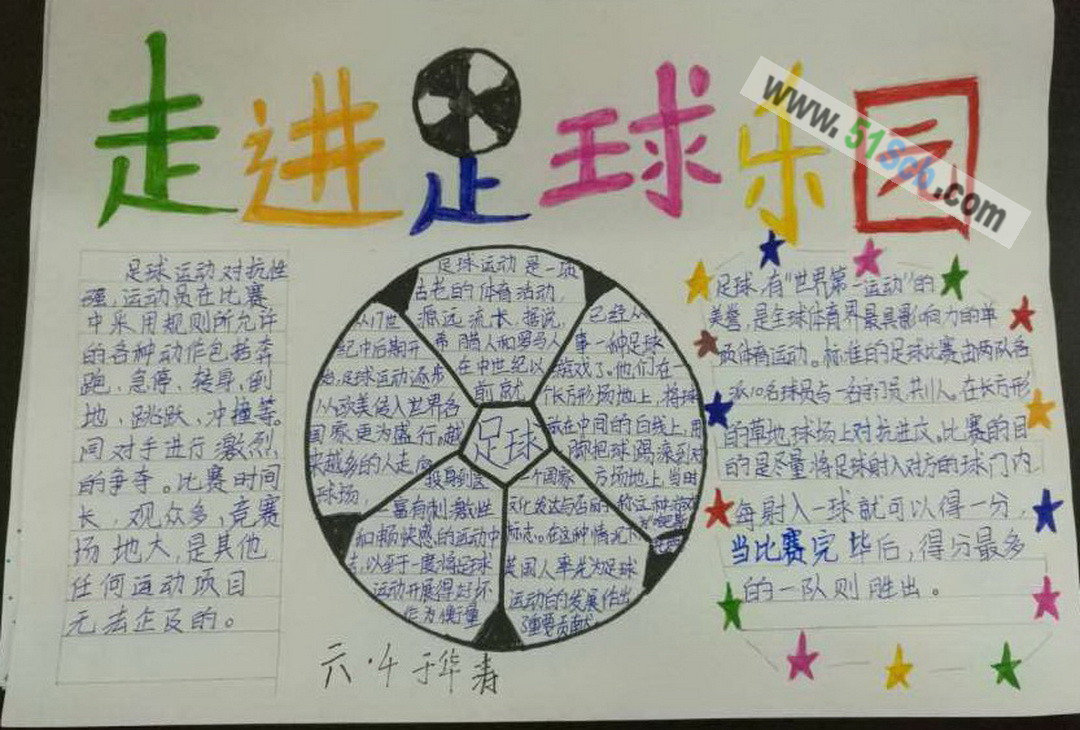 走进足球乐园
www.51Scb.com
足球运动对抗性
强,运动员在比赛
中采用规则所允许
的各种动作包括奔
跑、急停、转身、倒
地、跳跃、冲撞等。
同对手进行激烈
的争夺。比赛时间
长,观众多,竞赛
场地大,是其他
任何运动项目
无法企及的。
足球运动是一项
古老的体育活动,
源远流长,据说,
希腊人和罗马人
在中世纪以
前就
已经从
事一种足球
游戏了。他们在一
个长方形场地上,将球
放在中间的白线上,用
脚把球踢滚到对
方场地上,当时
称这种游戏
足球
从17世
纪中后期开
始,足球运动逐步
从欧美传入世界各
国家更为盛行。越
来越多的人走向
球场,
投身到这
一富有刺激性
和畅快感的运动中
去,以至于一度将足球
运动开展得好坏
作为衡量
一个国家
文化发达与否的
标志。在这种情况下
英国人率先为足球
运动的发展作出
了重要贡献
足球,有“世界第一运动”的
美誉,是全球体育界最具影响力的单
项体育运动。标准的足球比赛由两队各
派10名球员与一名守门员,共11人。在长方形
的草地球场上对抗进攻。比赛的目
的是尽量将足球射入对方的球门内,
每射入一球就可以得一分,
当比赛完毕后,得分最多
的一队则胜出。
六·4 于华寿